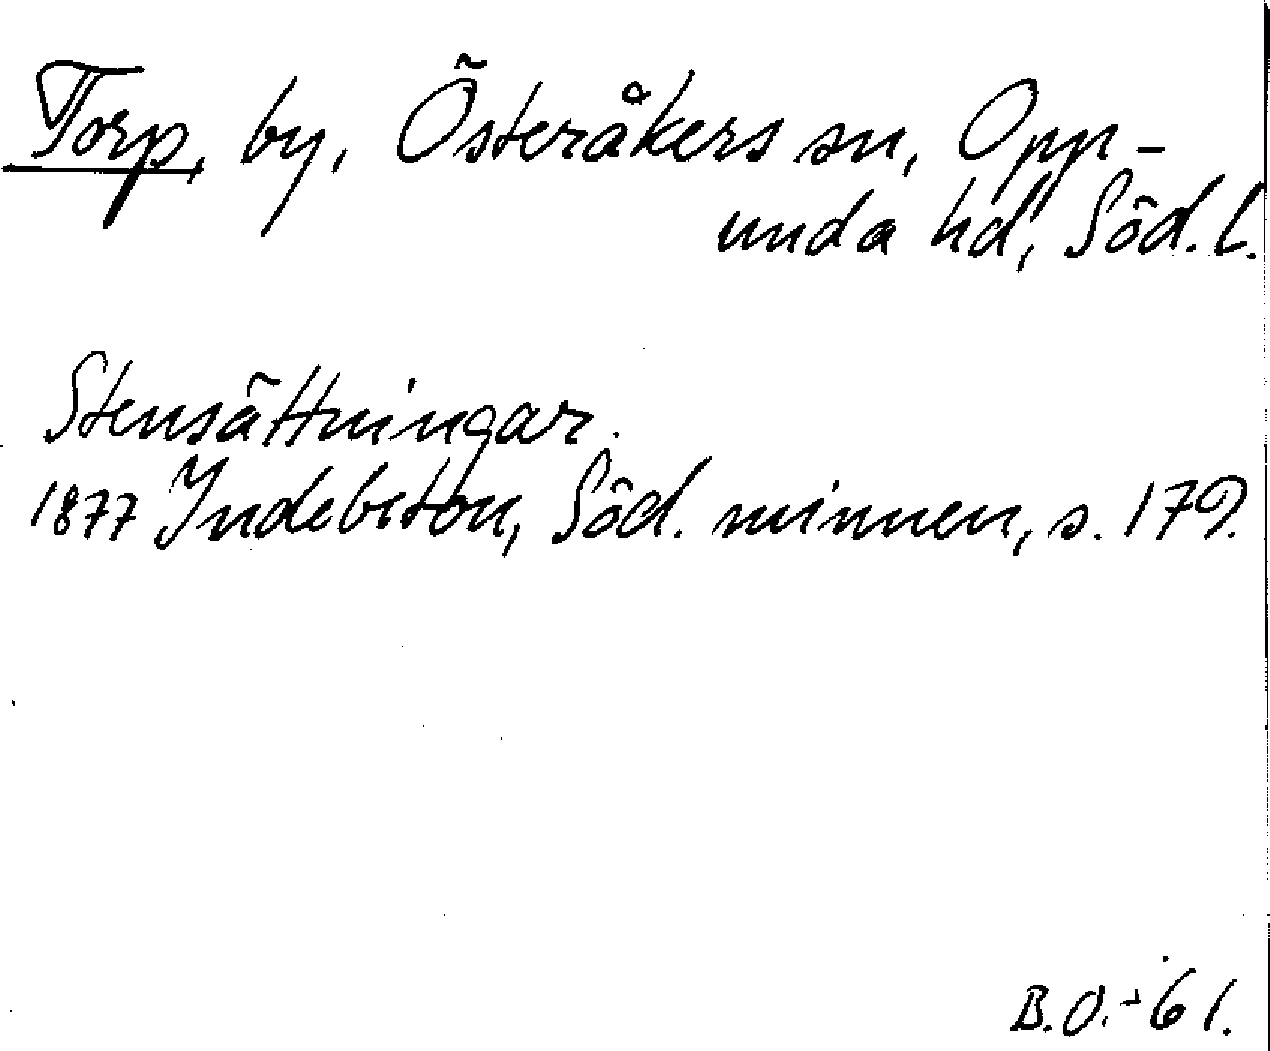 Torp, by, Österåkers sn, Opp-
unda hd, Söd.l.
Stensättningar.
1877 Indebetou, Söd. minnen, s. 179.
B.O.-61.